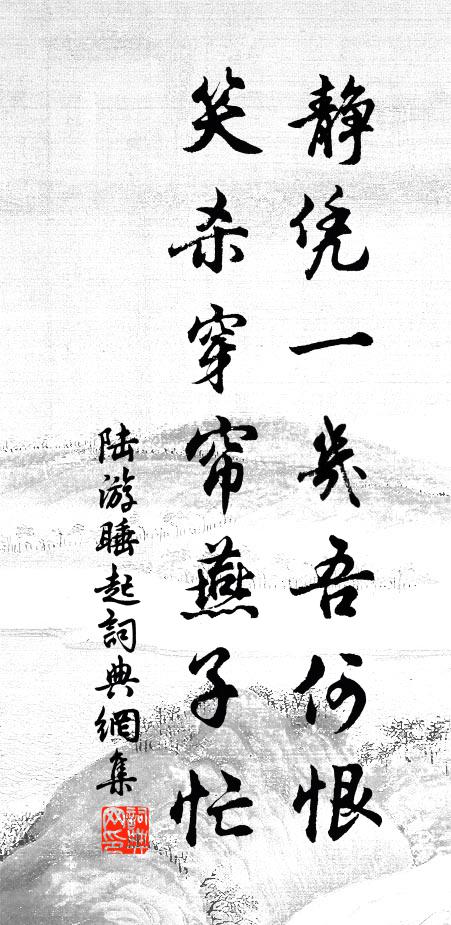 静凭一几吾何恨
笑杀穿帘燕子忙
陆游睡起詞典網集